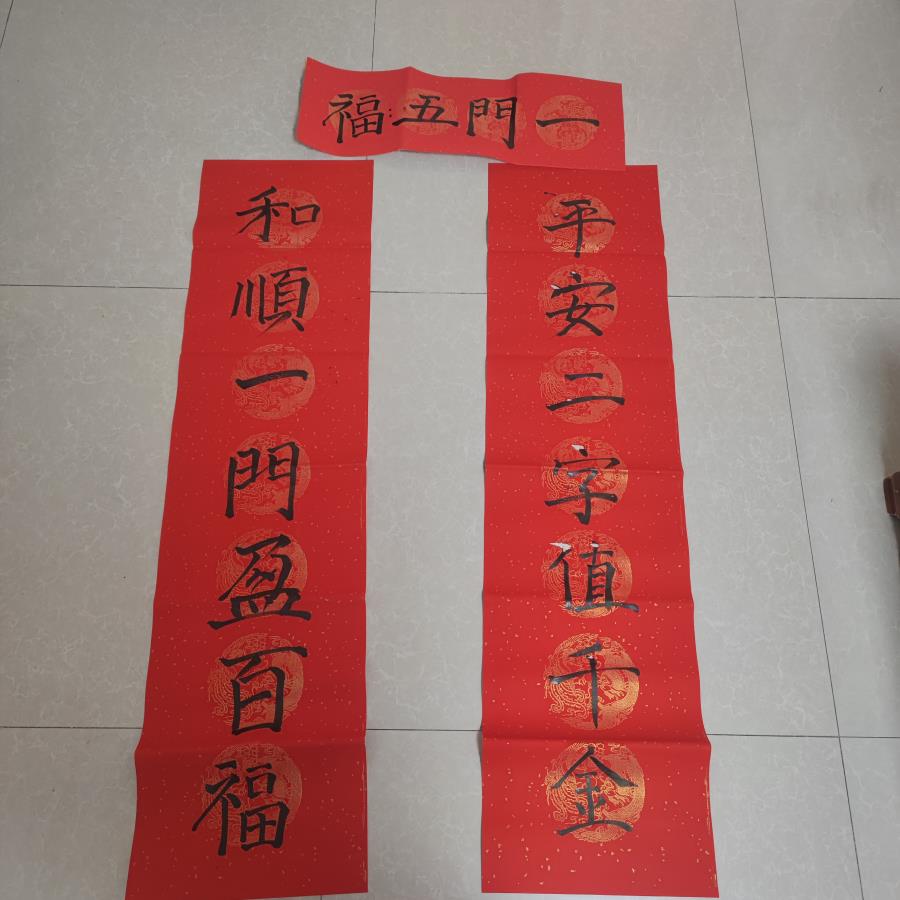 一門五福
平安二字值千金
和順一門盈百福